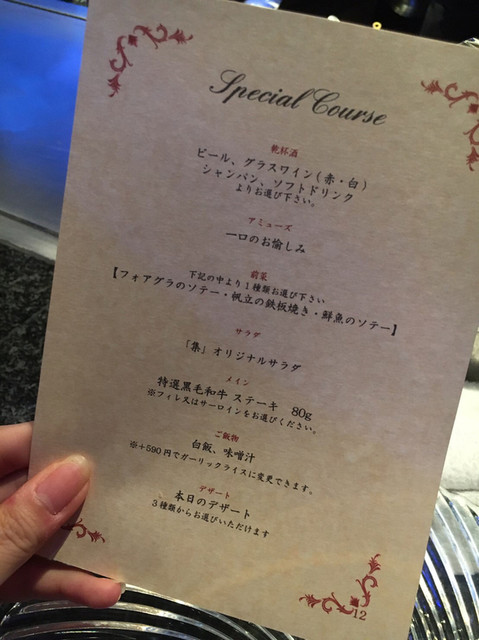 Special Course
乾杯酒
ビール、グラスワイン(赤・白)
シャンパン、ソフトドリンク
よりお選び下さい。
アミューズ
一口のお愉しみ
前菜
下記の中より1種類お選び下さい
【フォアグラのソテー・帆立の鉄板焼き・鮮魚のソテー】
サラダ
「集」オリジナルサラダ
メイン
特選黒毛和牛 ステーキ 80g
※フィレ又はサーロインをお選びください。
ご飯物
白飯、味噌汁
※+590円でガーリックライスに変更できます。
デザート
本日のデザート
3種類からお選びいただけます
12